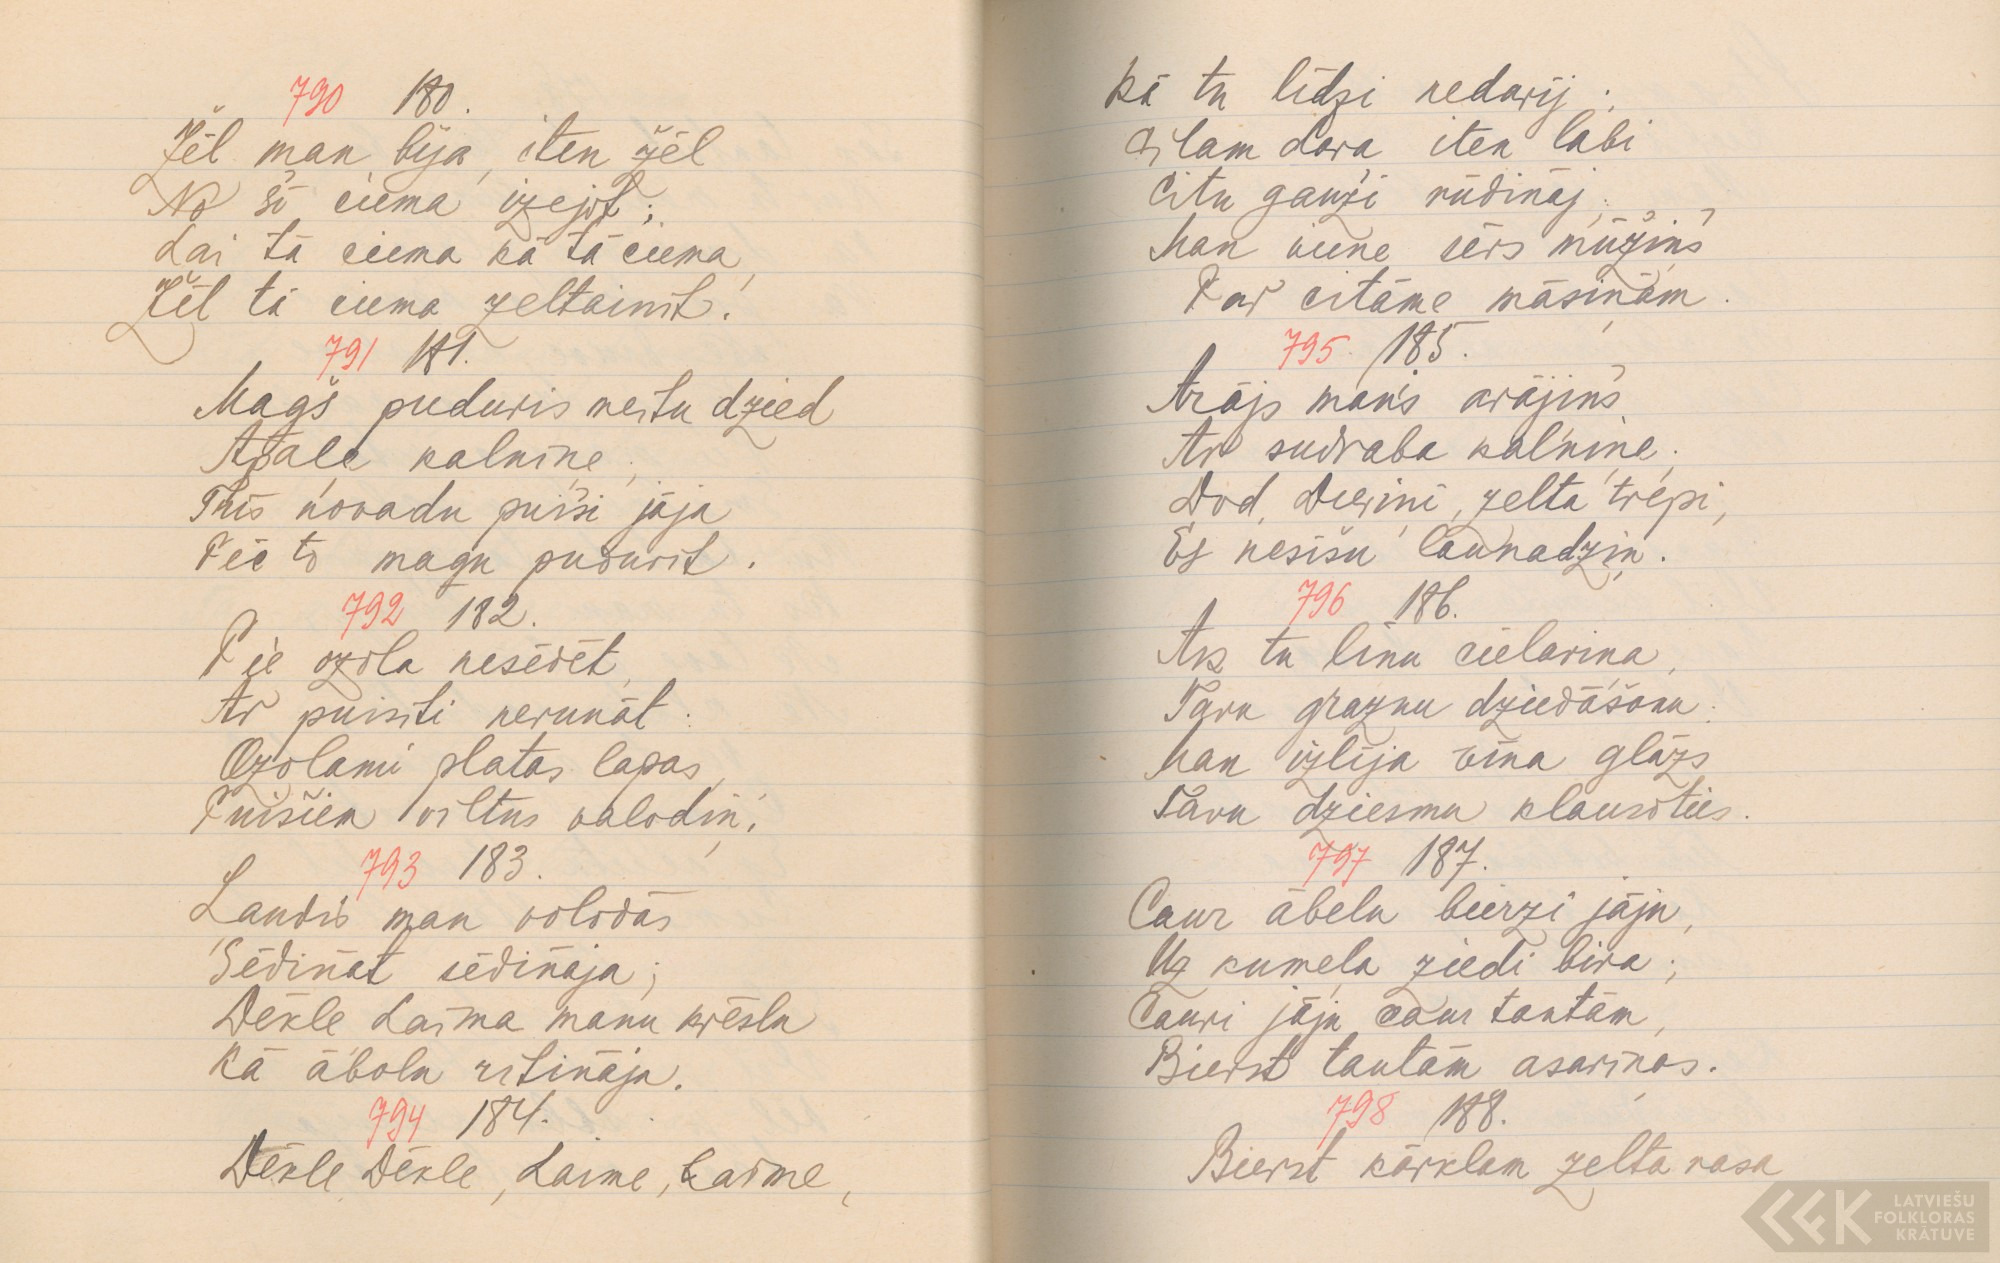 790 180.
Žēl man bija, iten žēl
No šō ciema izejōt;
Lai tā ciema kā tā ciema,
Žēl tā ciema zeltainīt.
791 181.
Magš puduris nestu dzied
Apaļe kalnīne;
Tuis novadu puiši jāja
Pie to magu pudurīt.
792 182.
Pie ozola nesēdēt,
Ar puisīti nerunāt:
Ozolami platas lapas,
Puišiem viltus valodiņ.
793 183.
Laudis man volodās
Sēdināt sēdināja;
Dēkle Laima manu krēslu
Kā ābolu ritināja.
794 184.
Dēkle, Dēkle, Laime, Laime,
Kā tu līdzi nedarij;
Citam dara iten labi
Citu gauži rūdināj;
Man viene sērs mūžiņš
Par citāme māsiņām.
795. 185.
Arājs mans arājiņš
Ar sudraba kalniņe;
Dod, Dieviņi, zelta trepi,
Es nesīšu launadziņ.
796 186.
Ak tu linu cielariņa,
Tavu grazņu dziedāšonu:
Man izlija vīna glāzs
Tavu dziesmu klausōties.
797 187.
Caur ābeļu bierzi jāju,
Uz kumeļa ziedi bira;
Cauri jāju caur tautām,
Bierst tautām asariņas.
798 188.
Bierst kārklam zelta rasa
LATVIEŠU
FOLKLORAS
KRĀTUVE